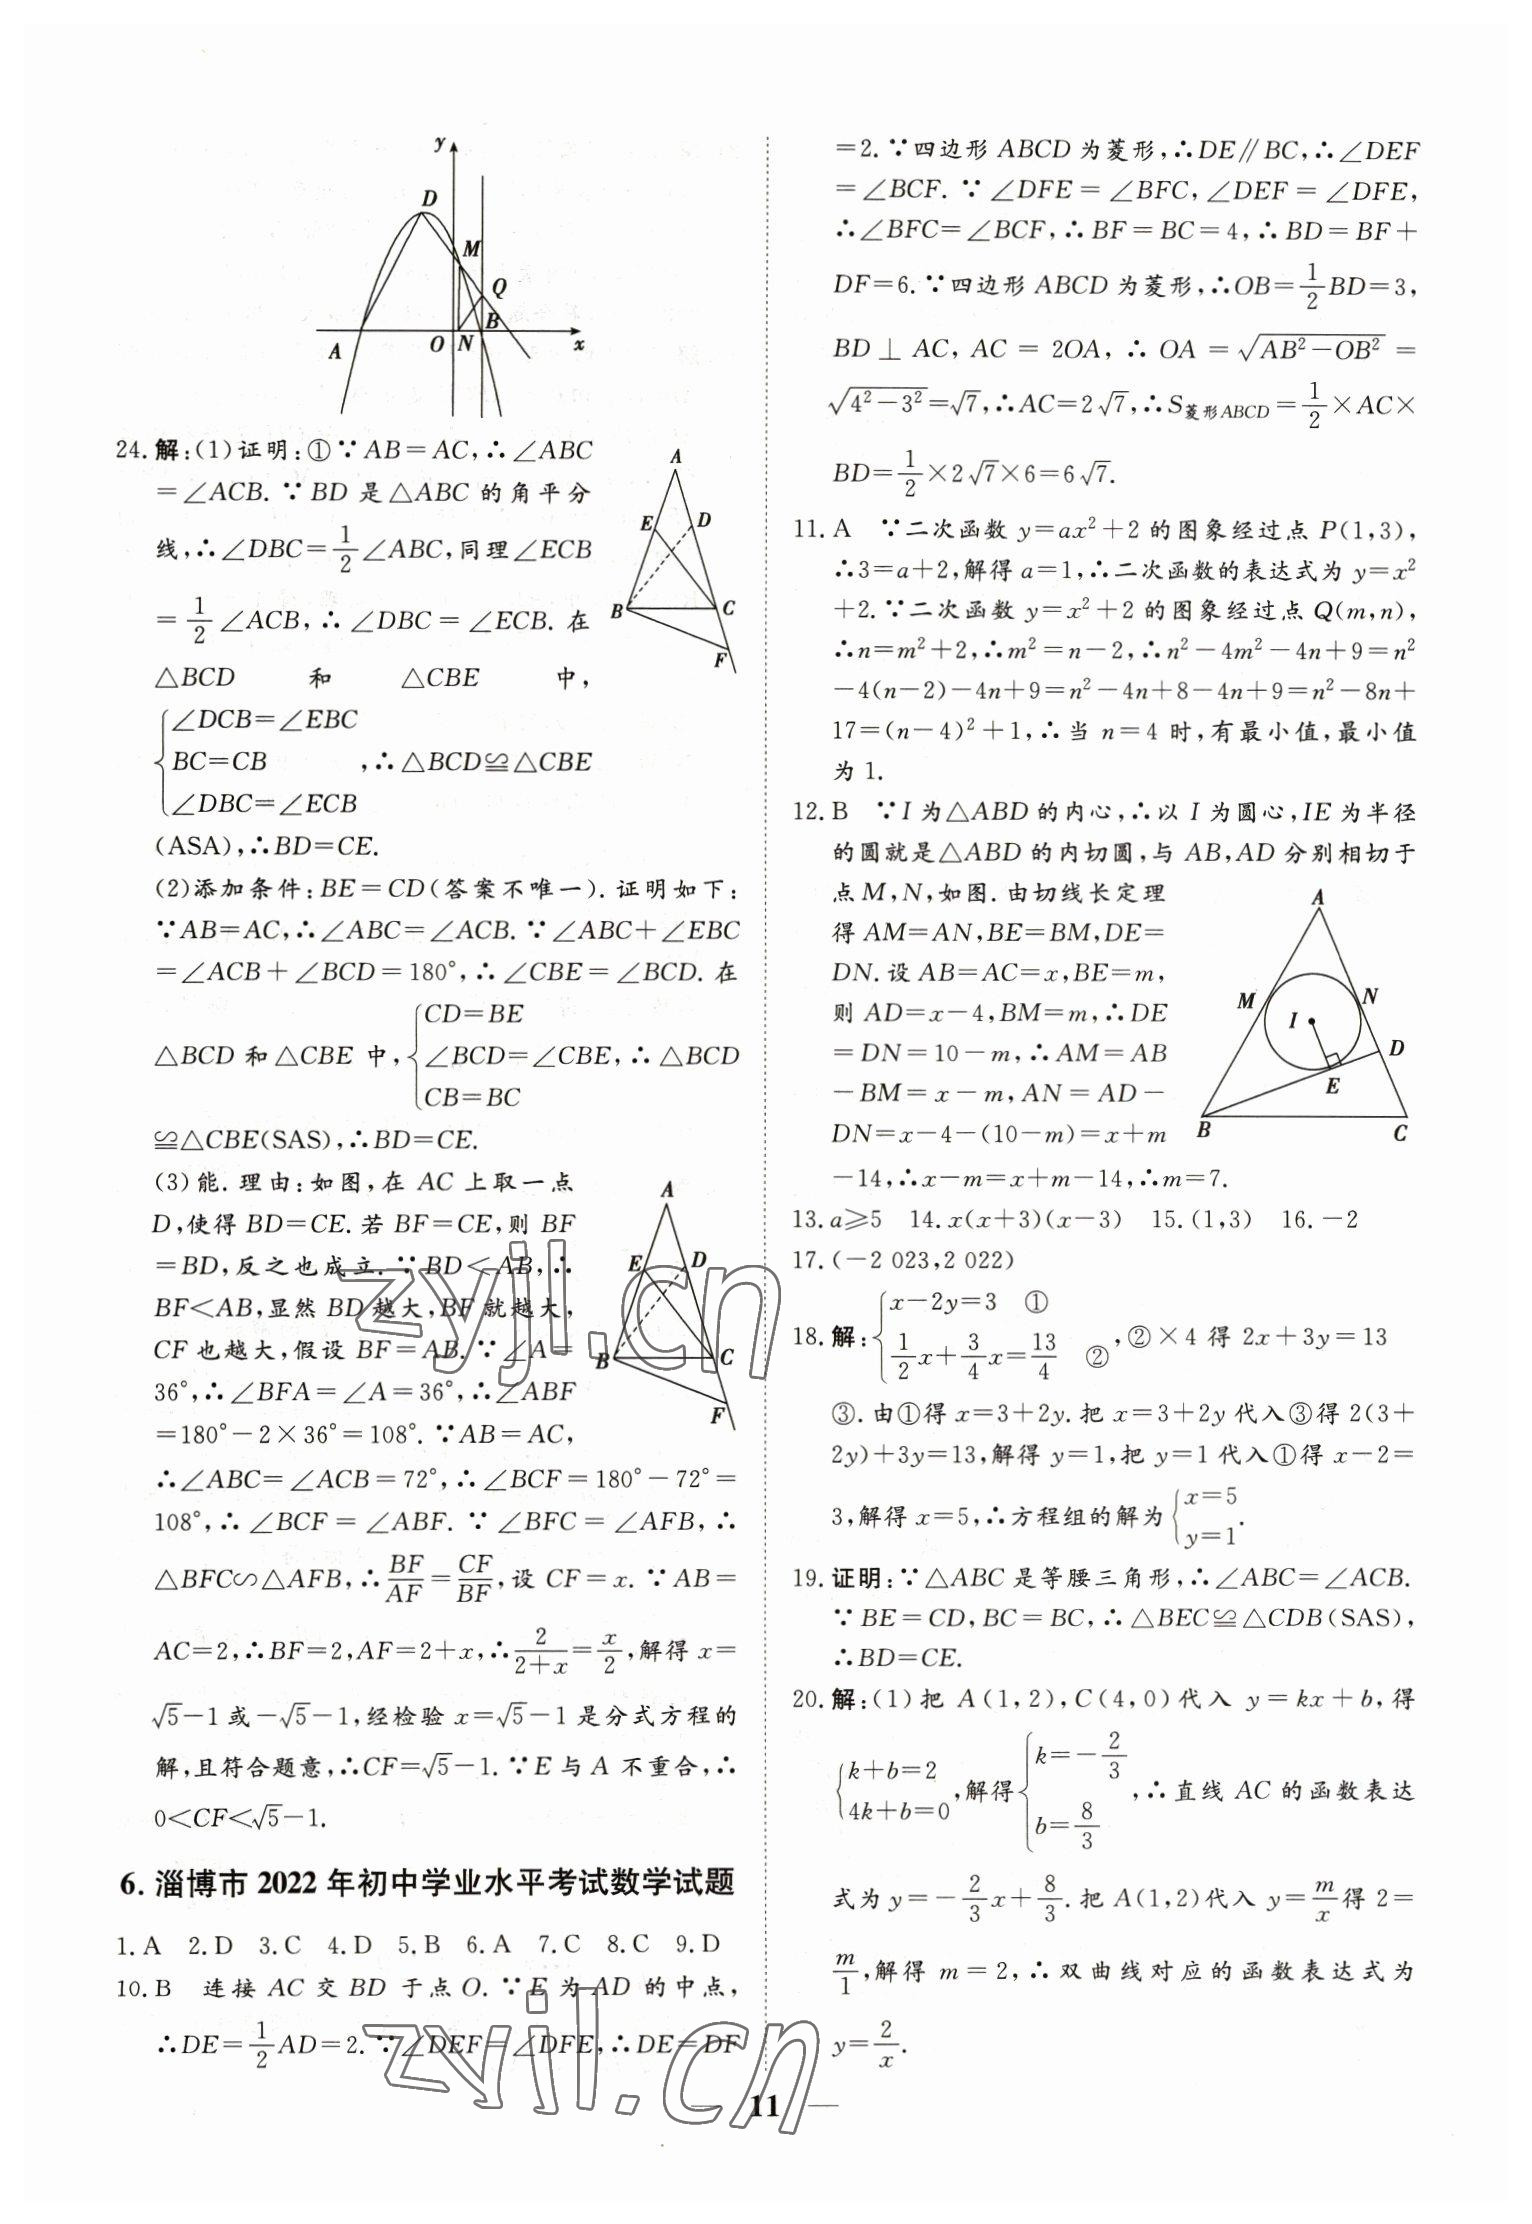 y
D
M
Q
B
A
O
N
x
24.解:(1)证明:①∵AB=AC,∴∠ABC
=∠ACB.∵BD 是△ABC 的角平分
线,∴∠DBC=1/2∠ABC,同理∠ECB
=1/2∠ACB,∴∠DBC=∠ECB.在
△BCD 和 △CBE 中,
∠DCB=∠EBC
BC=CB ,∴△BCD≌△CBE
∠DBC=∠ECB
(ASA),∴BD=CE.
A
E
D
B
C
F
(2)添加条件:BE=CD(答案不唯一).证明如下:
∵AB=AC,∴∠ABC=∠ACB.∵∠ABC+∠EBC
=∠ACB+∠BCD=180°,∴∠CBE=∠BCD.在
△BCD 和△CBE 中,{CD=BE
∠BCD=∠CBE,∴△BCD
CB=BC
≌△CBE(SAS),∴BD=CE.
(3)能.理由:如图,在 AC 上取一点
D,使得 BD=CE.若 BF=CE,则 BF
=BD,反之也成立.∵BD<AB,∴
BF<AB,显然 BD 越大,BF 就越大,
CF 也越大,假设 BF=AB.∵∠A=
36°,∴∠BFA=∠A=36°,∴∠ABF
=180°-2×36°=108°.∵AB=AC,
A
E
D
B
C
F
∴∠ABC=∠ACB=72°,∴∠BCF=180°-72°=
108°,∴∠BCF=∠ABF.∵∠BFC=∠AFB,∴
△BFC∽△AFB,∴BF/AF=CF/BF,设 CF=x.∵AB=
AC=2,∴BF=2,AF=2+x,∴2/(2+x)=x/2,解得 x=
√5-1 或-√5-1,经检验 x=√5-1 是分式方程的
解,且符合题意,∴CF=√5-1.∵E 与 A 不重合,∴
0<CF<√5-1.
6. 淄博市 2022 年初中学业水平考试数学试题
1.A 2.D 3.C 4.D 5.B 6.A 7.C 8.C 9.D
10.B 连接 AC 交 BD 于点 O.∵E 为 AD 的中点,
∴DE=1/2AD=2.∵∠DEF=∠DFE,∴DE=DF
=2.∵四边形 ABCD 为菱形,∴DE∥BC,∴∠DEF
=∠BCF.∵∠DFE=∠BFC,∠DEF=∠DFE,
∴∠BFC=∠BCF,∴BF=BC=4,∴BD=BF+
DF=6.∵四边形 ABCD 为菱形,∴OB=1/2BD=3,
BD⊥AC,AC=2OA,∴OA=√(AB²-OB²)=
√(4²-3²)=√7,∴AC=2√7,∴S菱形ABCD=1/2×AC×
BD=1/2×2√7×6=6√7.
11.A ∵二次函数 y=ax²+2 的图象经过点 P(1,3),
∴3=a+2,解得 a=1,∴二次函数的表达式为 y=x²
+2.∵二次函数 y=x²+2 的图象经过点 Q(m,n),
∴n=m²+2,∴m²=n-2,∴n²-4m²-4n+9=n²
-4(n-2)-4n+9=n²-4n+8-4n+9=n²-8n+
17=(n-4)²+1,∴当 n=4 时,有最小值,最小值
为 1.
12.B ∵I 为△ABD 的内心,∴以 I 为圆心,IE 为半径
的圆就是△ABD 的内切圆,与 AB,AD 分别相切于
点 M,N,如图.由切线长定理
得 AM=AN,BE=BM,DE=
DN.设 AB=AC=x,BE=m,
则 AD=x-4,BM=m,∴DE
=DN=10-m,∴AM=AB
-BM=x-m,AN=AD-
DN=x-4-(10-m)=x+m
-14,∴x-m=x+m-14,∴m=7.
A
M
N
I
D
E
B
C
13.a≥5 14.x(x+3)(x-3) 15.(1,3) 16.-2
17.(-2 023,2 022)
18.解:{x-2y=3 ①
1/2x+3/4x=13/4 ②,②×4 得 2x+3y=13
③.由①得 x=3+2y.把 x=3+2y 代入③得 2(3+
2y)+3y=13,解得 y=1,把 y=1 代入①得 x-2=
3,解得 x=5,∴方程组的解为{x=5
y=1.
19.证明:∵△ABC 是等腰三角形,∴∠ABC=∠ACB.
∵BE=CD,BC=BC,∴△BEC≌△CDB(SAS),
∴BD=CE.
20.解:(1)把 A(1,2),C(4,0)代入 y=kx+b,得
{k+b=2
4k+b=0,解得{k=-2/3
b=8/3,∴直线 AC 的函数表达
式为 y=-2/3x+8/3.把 A(1,2)代入 y=m/x得 2=
m/1,解得 m=2,∴双曲线对应的函数表达式为
y=2/x.
11
zyjl.cn
zyjl.cn